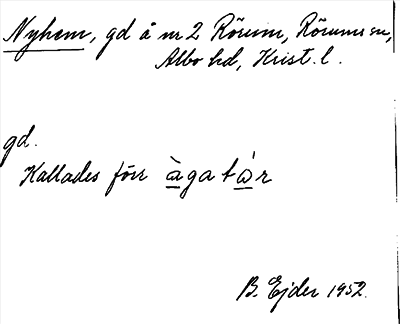 Nyhem, gd å nr 2 Rörum, Rörums sn,
Albo hd, Krist. l.
gd.
Kallades förr àgatὼr
B. Ejder 1952.